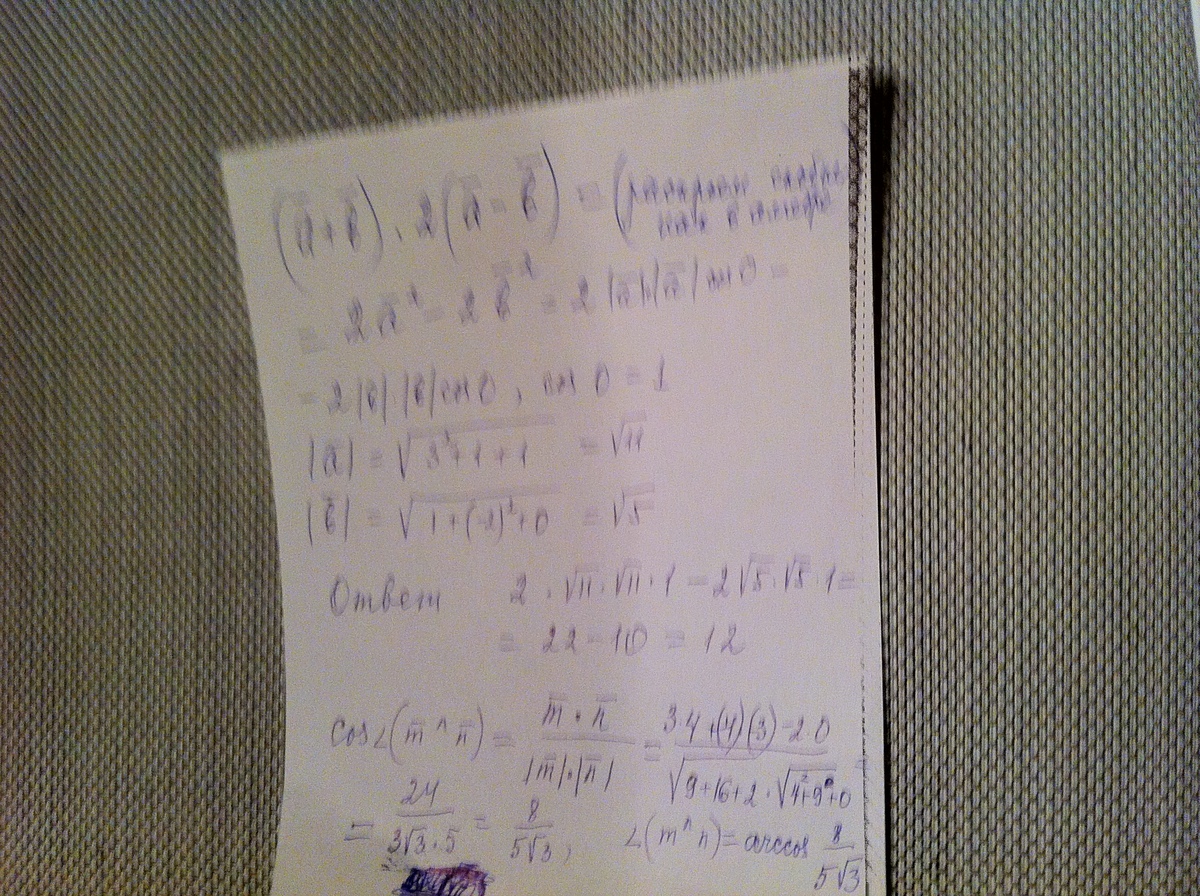 (a̅ + b̅) · 2(a̅ - b̅) = (раскроем скобки
как в алгебре
= 2a̅² - 2b̅² = 2|a̅|·|a̅| cos 0 -
- 2|b̅|·|b̅| cos 0, cos 0 = 1
|a̅| = √(3² + 1 + 1) = √11
|b̅| = √(1 + (-2)² + 0) = √5
Ответ 2 · √11 · √11 · 1 - 2√5 · √5 · 1 =
= 22 - 10 = 12
cos∠(m̅ ^ n̅) = (m̅ · n̅)/(|m̅|·|n̅|) = (3·4+(4)(3)-2·0)/(√(9+16+2) · √(4²+9+0))
= 24/(3√3 · 5) = 8/(5√3), ∠(m ^ n) = arccos 8/(5√3)